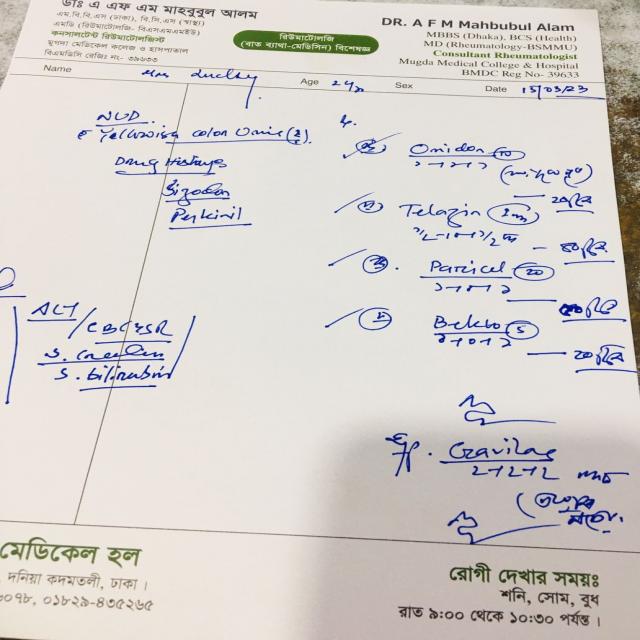 ডাঃ এ এফ এম মাহবুবুল আলম
এম.বি.বি.এস (ঢাকা), বি.সি.এস (স্বাস্থ্য)
এমডি (রিউমাটোলজি- বিএসএমএমইউ)
কনসালটেন্ট রিউমাটোলজিস্ট
মুগদা মেডিকেল কলেজ ও হাসপাতাল
বিএমডিসি রেজিঃ নং- ৩৯৬৩৩
রিউমাটোলজি
(বাত ব্যাথা-মেডিসিন) বিশেষজ্ঞ
DR. A F M Mahbubul Alam
MBBS (Dhaka), BCS (Health)
MD (Rheumatology-BSMMU)
Consultant Rheumatologist
Mugda Medical College & Hospital
BMDC Reg No- 39633
Name Mrs Luckey Age 24 Sex Date 15/03/23
NUD
Yellowish color Urine
Drug History
Sizodon
Perkinil
ALT/CBC ESR
S. creatinin
S. bilirubin
Omidon 10
১+১+১
Telazin 1mg
১/২+১+১/২
Paricel 20
১+০+১
Beklo 5
১+০+১
২০টি
Gavilac
২+২+২
মেডিকেল হল
দনিয়া কদমতলী, ঢাকা।
০১৮২৯-৪৩৫২৬৫
রোগী দেখার সময়ঃ
শনি, সোম, বুধ
রাত ৯:০০ থেকে ১০:৩০ পর্যন্ত।